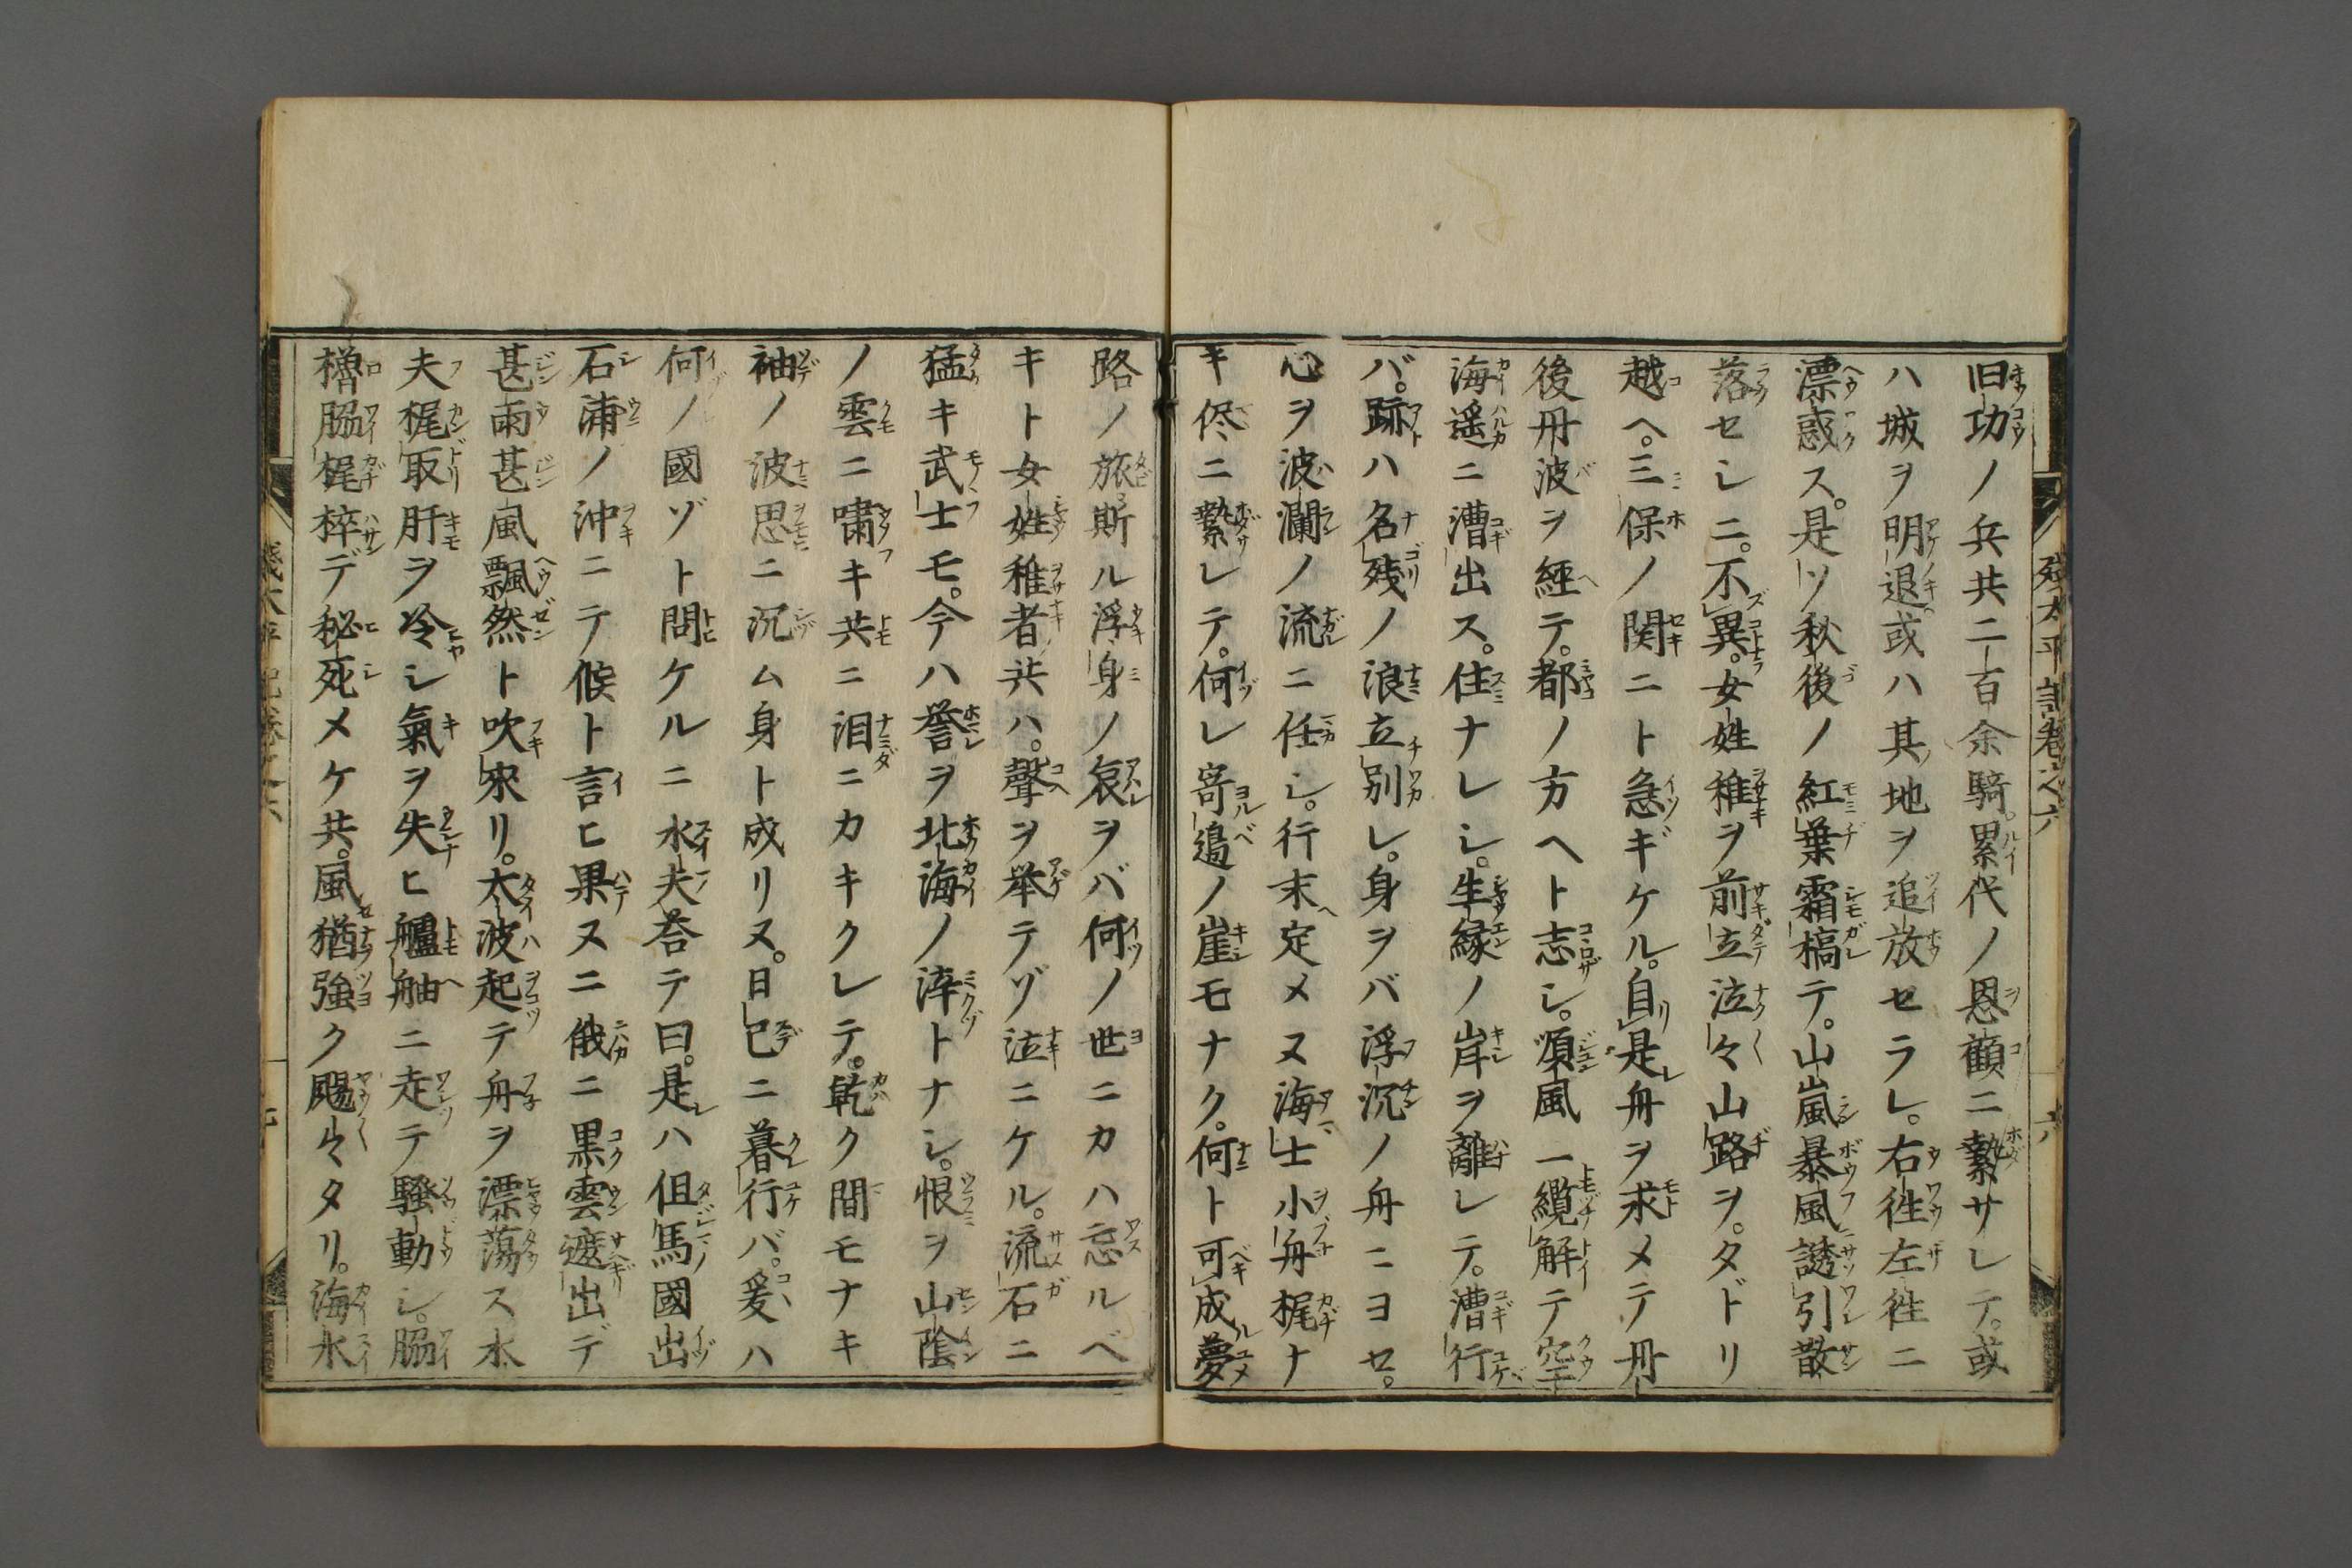 旧功ノ兵共二百余騎。累代ノ恩顧ニ縶サレテ。或
ハ城ヲ明退或ハ其地ヲ追放セラレ。右徃左徃ニ
漂惑ス。是ソ秋後ノ紅葉霜槁テ。山嵐暴風誘引散
落セシニ。不異。女姓稚ヲ前立泣々山路ヲ。タドリ
越ヘ。三保ノ関ニト急ギケル。自是舟ヲ求メテ丹
後丹波ヲ經テ。都ノ方ヘト志シ。順風一纜解テ空
海遥ニ漕出ス。住ナレシ。生縁ノ岸ヲ離レテ。漕行
バ。跡ハ名残ノ浪立別レ。身ヲバ浮沉ノ舟ニヨセ。
心ヲ波瀾ノ流ニ任シ。行末定メヌ海士小舟梶ナ
キ侭ニ縶レテ。何レ寄邉ノ崖モナク。何ト可成夢
路ノ旅斯ル浮身ノ哀ヲバ何ノ世ニカハ忘ルベ
キト女姓稚者共ハ。聲ヲ挙テゾ泣ニケル。流石ニ
猛キ武士モ。今ハ誉ヲ北海ノ滓トナシ。恨ヲ山陰
ノ雲ニ嘯キ共ニ泪ニカキクレテ。乾ク間モナキ
袖ノ波思ニ沉ム身ト成リヌ。日已ニ暮行バ。爰ハ
何ノ國ゾト問ケルニ水夫荅テ曰。是ハ但馬國出
石浦ノ沖ニテ候ト言ヒ果ヌニ俄ニ黒雲遮出デ
甚雨甚風飄然ト吹来リ。大波起テ舟ヲ漂蕩ス水
夫梶取肝ヲ冷シ氣ヲ失ヒ艫舳ニ走テ騒動シ。脇
櫓脇梶椊デ秘死メケ共。風猶強ク颺々タリ。海水
残太平記巻之六 六